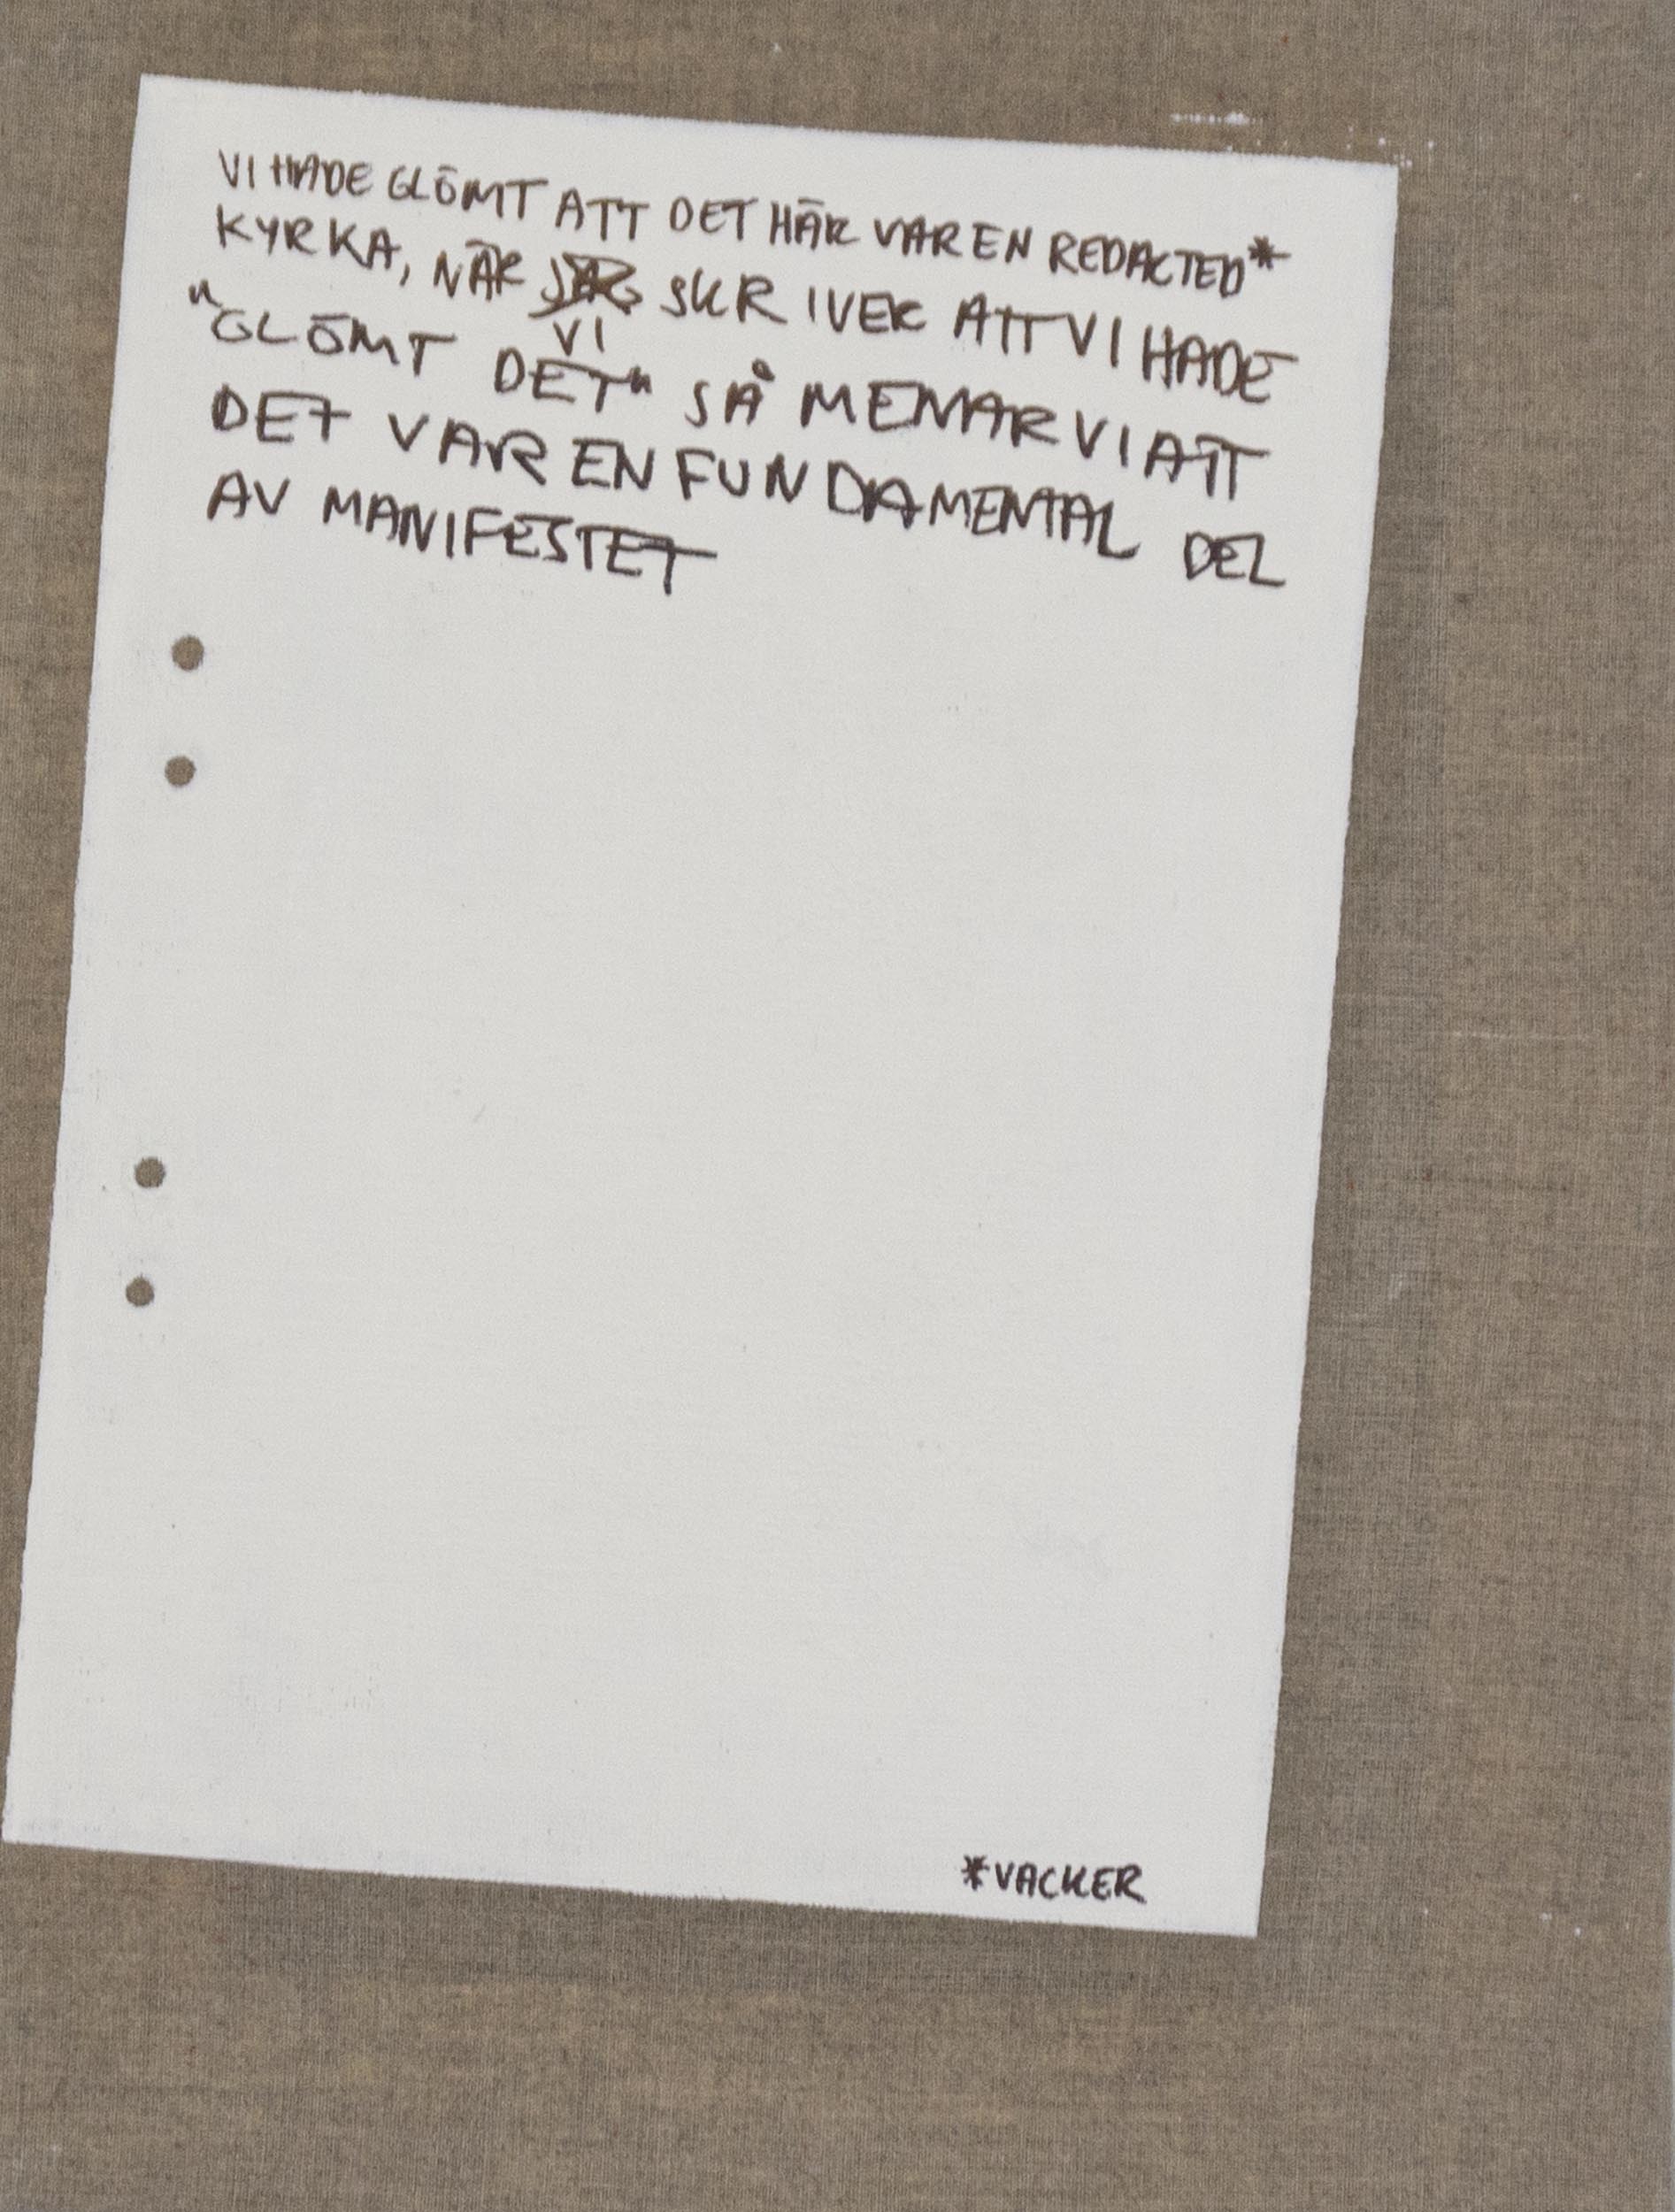 VI HADE GLÖMT ATT DET HÄR VAR EN REDACTED*
KYRKA, NÄR JAG SKRIVER ATT VI HADE
VI
"GLÖMT DET" SÅ MENAR VI ATT
DET VAR EN FUNDAMENTAL DEL
AV MANIFESTET
*VACKER